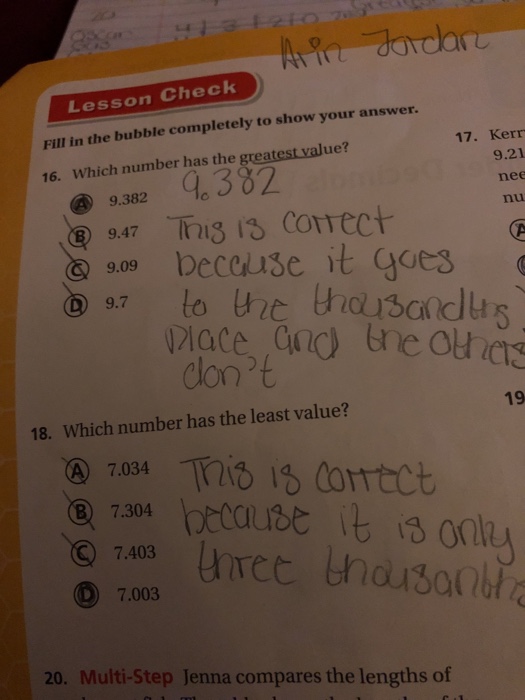 Arin Jordan
Lesson Check
Fill in the bubble completely to show your answer.
16. Which number has the greatest value?
A 9.382
B 9.47
C 9.09
D 9.7
9.382
This is correct
because it goes
to the thousandths
place and the others
don't
17. Kerr
9.21
nee
nu
A
18. Which number has the least value?
A 7.034
B 7.304
C 7.403
D 7.003
This is correct
because it is only
three thousanths
19
20. Multi-Step Jenna compares the lengths of